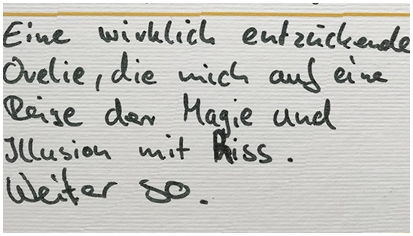 Eine wirklich entzückende
, die mich auf eine
Reise der Magie und
Illusion mit Riss.
Weiter so.